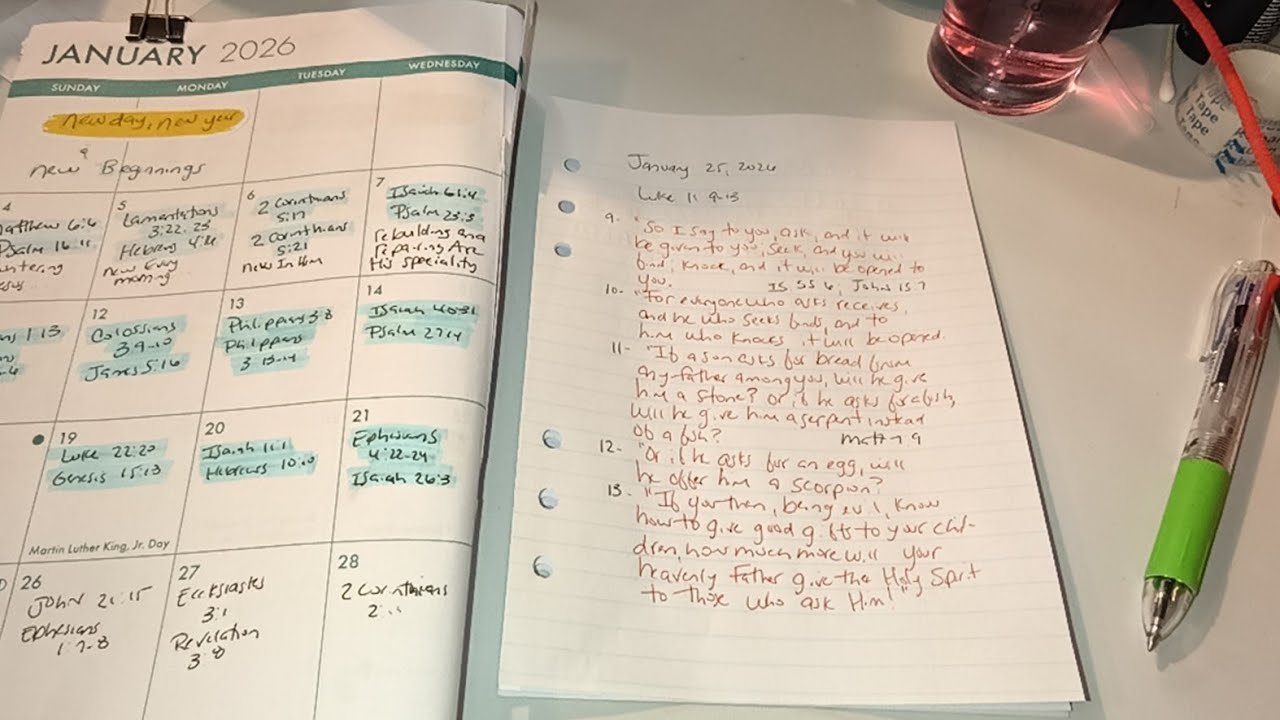 JANUARY 2026
SUNDAY MONDAY TUESDAY WEDNESDAY
new day, new year
new Beginnings
4
Matthew 6:6
Psalm 16:11
5
Lamentations
3:22-23
Hebrews 4:16
new Every
morning
6
2 Corinthians
5:17
2 Corinthians
5:21
new In Him
7
Isaiah 61:4
Psalm 23:3
rebuilding and
repairing Are
His speciality
12
Colossians
3:9-10
James 5:16
13
Philippians 3:8
Philippians
3:13-14
14
Isaiah 40:31
Psalm 27:14
19
Luke 22:20
Genesis 15:13
Martin Luther King, Jr. Day
20
Isaiah 11:1
Hebrews 10:10
21
Ephesians
4:22-24
Isaiah 26:3
26
John 21:15
Ephesians
1:7-8
27
Ecclesiastes
3:1
Revelation
3:8
28
2 Corinthians
2:11
January 25, 2026
Luke 11 9-13
9- "So I say to you, ask, and it will
be given to you, seek, and you will
find; knock, and it will be opened to
you. Is 55 6, John 15 7
10- "For everyone who asks receives,
and he who seeks finds, and to
him who knocks it will be opened.
11- "If a son asks for bread from
any father among you, will he give
him a stone? Or if he asks for a fish,
will he give him a serpent instead
of a fish? Matt 7 9
12- "Or if he asks for an egg, will
he offer him a scorpion?
13. "If you then, being evil, know
how to give good gifts to your chil-
dren, how much more will your
heavenly Father give the Holy Spirit
to those who ask Him!"
Tape
Tape